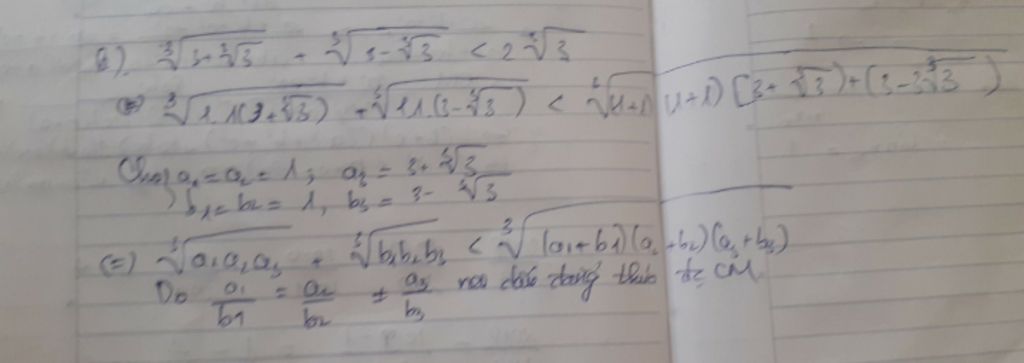 b). ∛(3+∛3) + ∛(3-∛3) < 2∛3
(=) ∛(1.1(3+∛3)) + ∛(1.1.(3-∛3)) < ∛((1+1)(1+1)[3+∛3)+(3-∛3))
a₁=a₂=1; a₃=3+∛3
b₁=b₂=1, b₃=3-∛3
(=) ∛(a₁a₂a₃) + ∛(b₁b₂b₃) < ∛((a₁+b₁)(a₂+b₂)(a₃+b₃))
Do a₁/b₁ = a₂/b₂ ≠ a₃/b₃ nên dấu đẳng thức CM